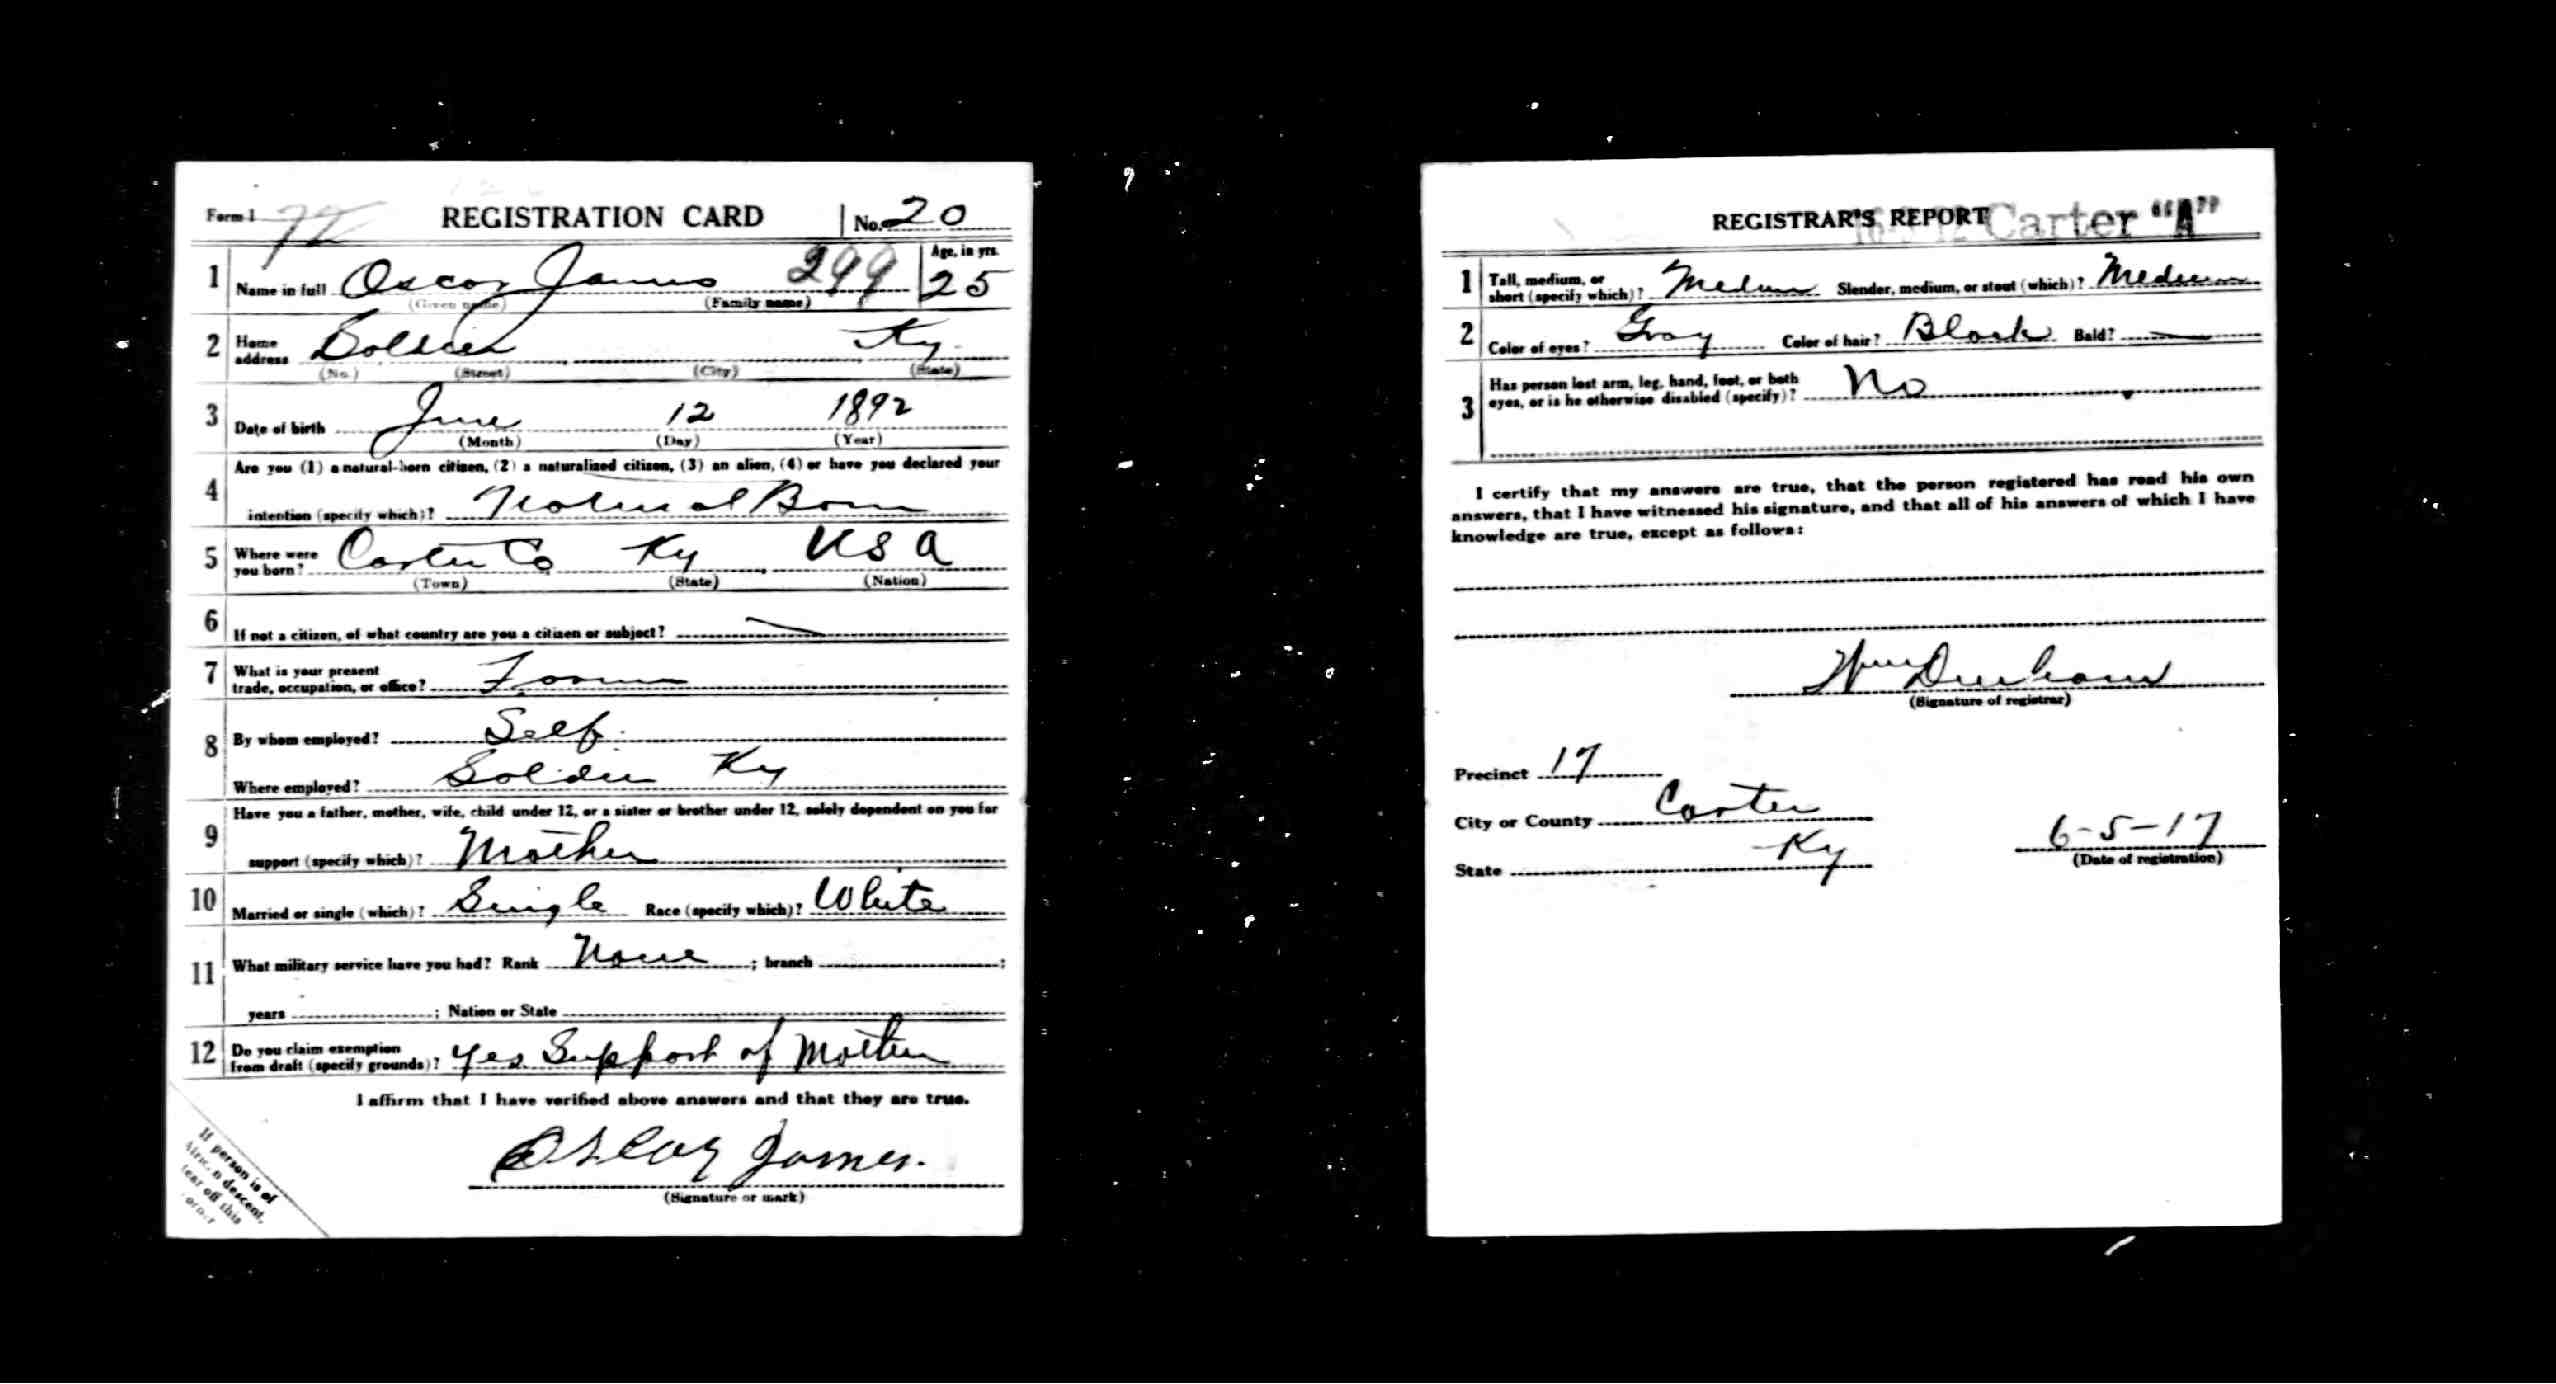 Form 1 REGISTRATION CARD No. 20
1 Name in full Oscar James 299 Age, in yrs. 25
(Given name) (Family name)
2 Home address Soldier Ky.
(No.) (Street) (City) (State)
3 Date of birth June 12 1892
(Month) (Day) (Year)
4 Are you (1) a natural-born citizen, (2) a naturalized citizen, (3) an alien, (4) or have you declared your
intention (specify which)? Natural Born
5 Where were you born? Carter Co Ky USA
(Town) (State) (Nation)
6 If not a citizen, of what country are you a citizen or subject?
7 What is your present
trade, occupation, or office? Farmer
8 By whom employed? Self
Where employed? Soldier Ky
9 Have you a father, mother, wife, child under 12, or a sister or brother under 12, solely dependent on you for
support (specify which)? Mother
10 Married or single (which)? Single Race (specify which)? White
11 What military service have you had? Rank None ; branch ;
years ; Nation or State
12 Do you claim exemption
from draft (specify grounds)? Yes Support of Mother
I affirm that I have verified above answers and that they are true.
Oscar James.
(Signature or mark)
If person is of
African descent,
tear off this
corner
REGISTRAR'S REPORT Carter "A"
1 Tall, medium, or
short (specify which)? Medium Slender, medium, or stout (which)? Medium
2 Color of eyes? Gray Color of hair? Black Bald?
3 Has person lost arm, leg, hand, foot, or both
eyes, or is he otherwise disabled (specify)? No
I certify that my answers are true, that the person registered has read his own
answers, that I have witnessed his signature, and that all of his answers of which I have
knowledge are true, except as follows:
Wm Durham
(Signature of registrar)
Precinct 17
City or County Carter
State Ky
6-5-17
(Date of registration)